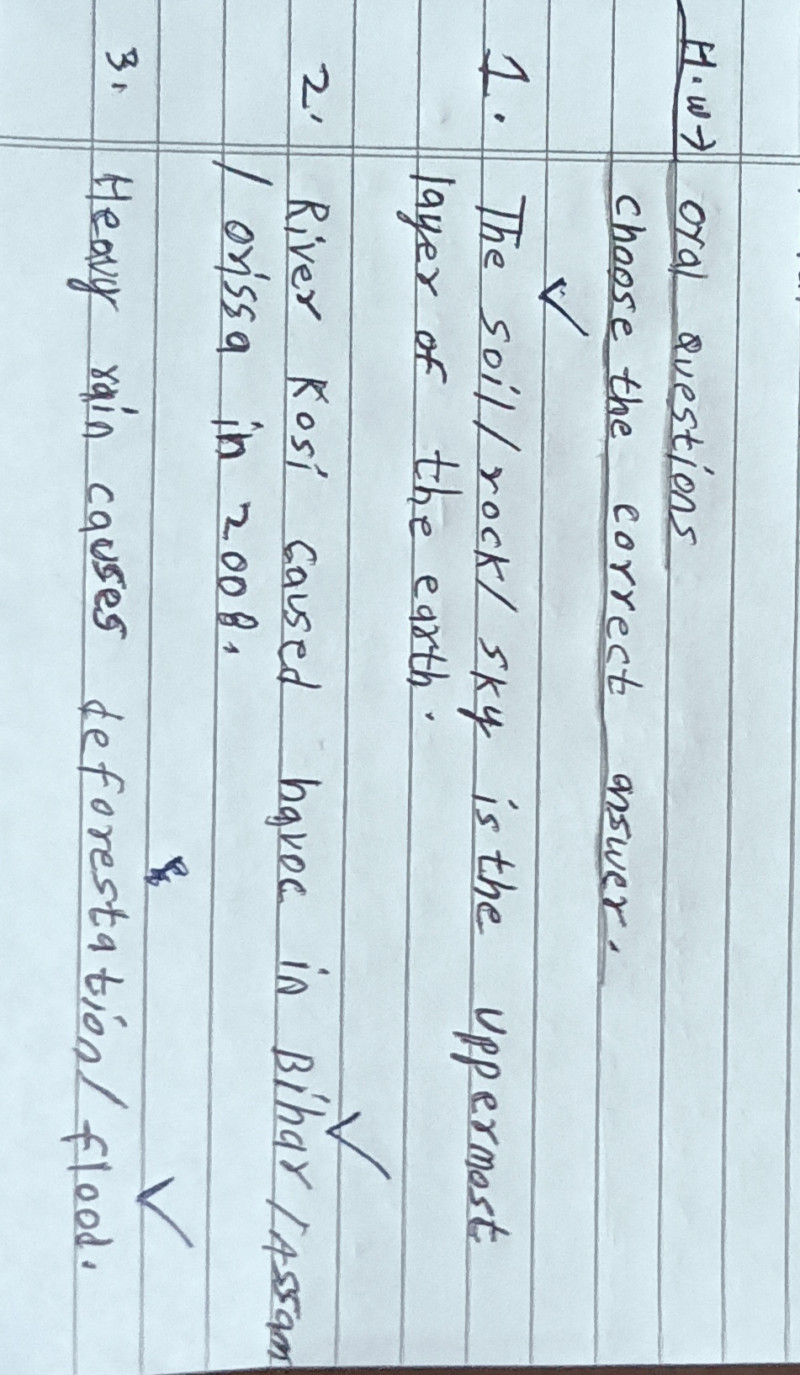 H.W→ oral questions
choose the correct answer.
1. The soil/rock/sky is the uppermost
layer of the earth.
2. River Kosi caused havoc in Bihar/Assam
/ orissa in 2008.
3. Heavy rain causes deforestation/flood.